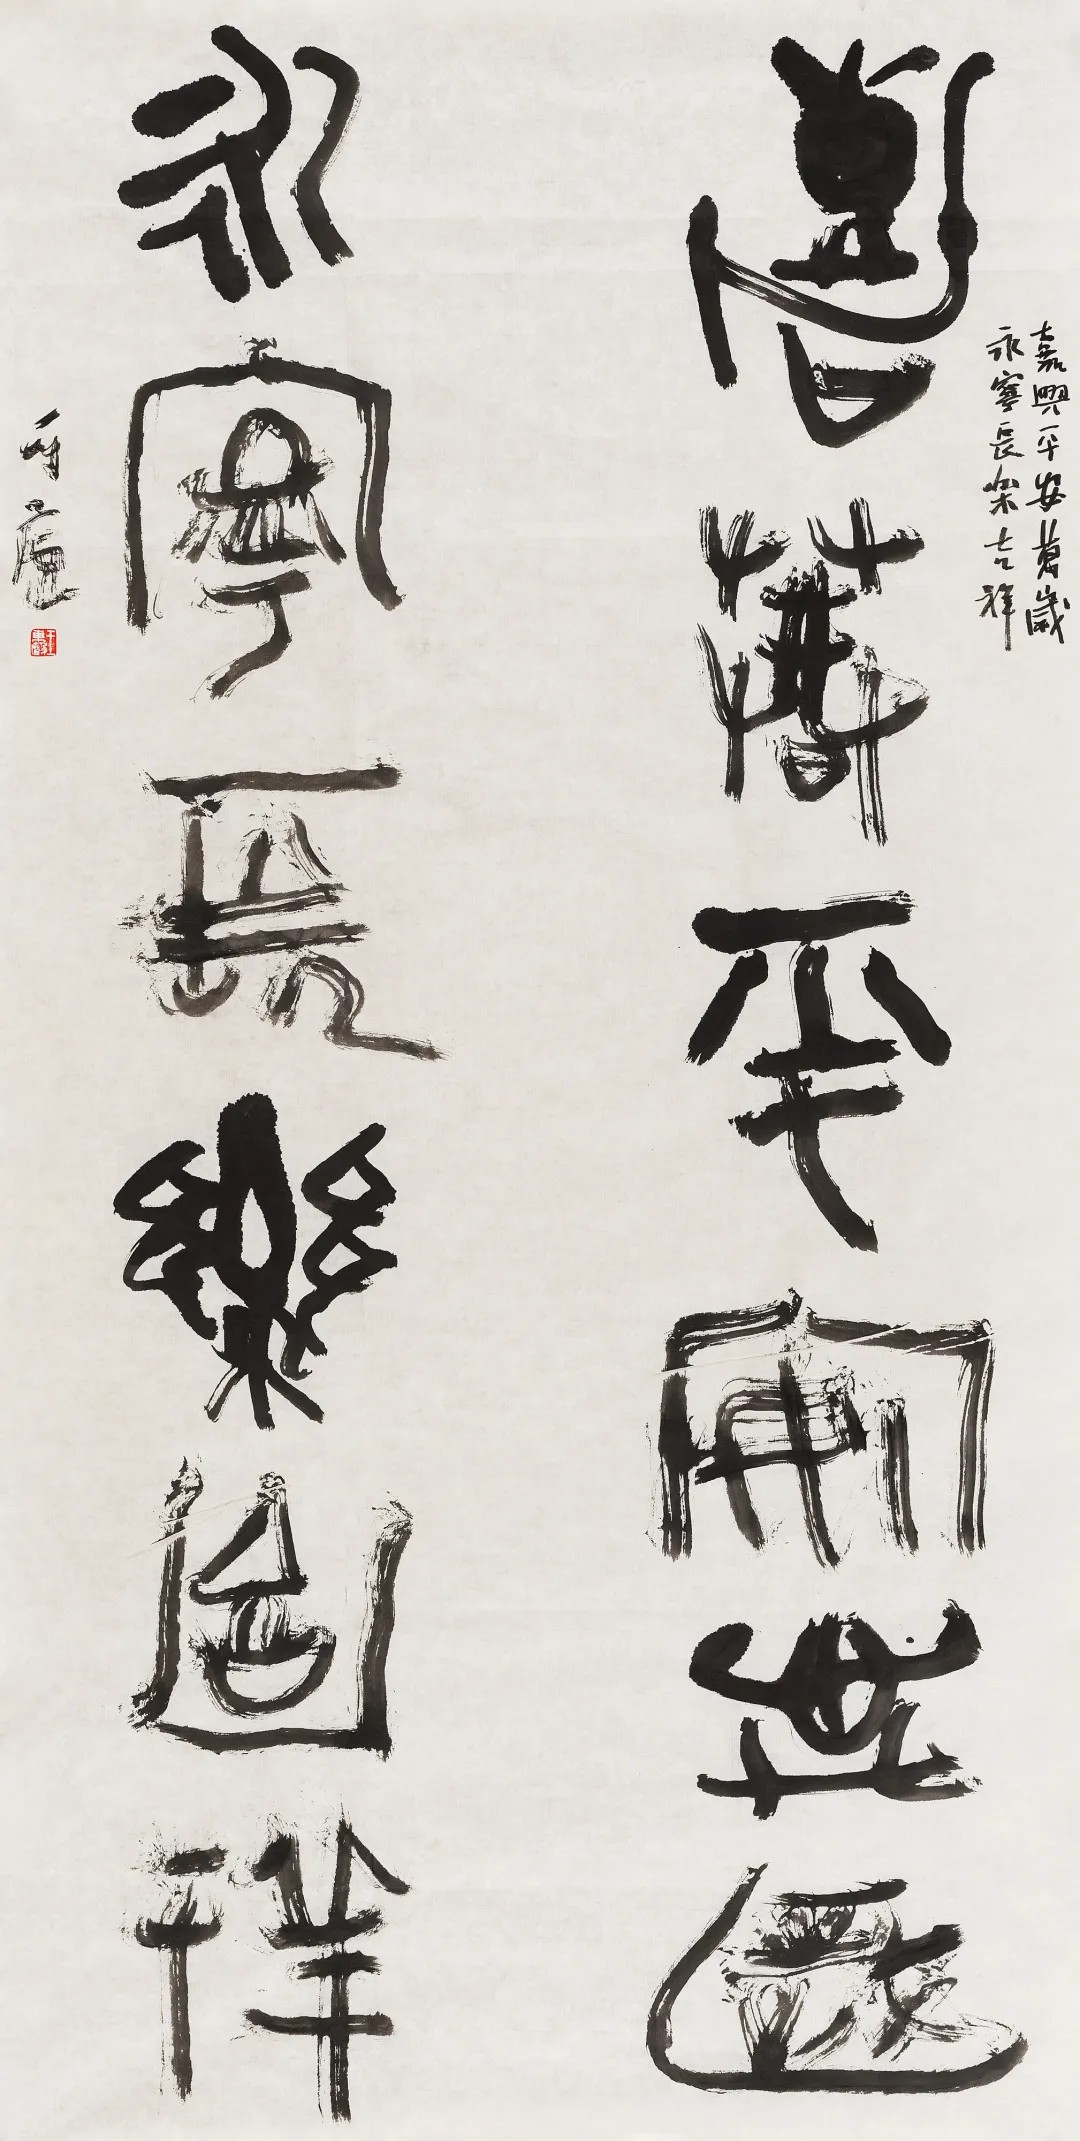 嘉興平安萬歲
永寧長樂吉祥
嘉興平安萬歲
永寧長樂吉祥